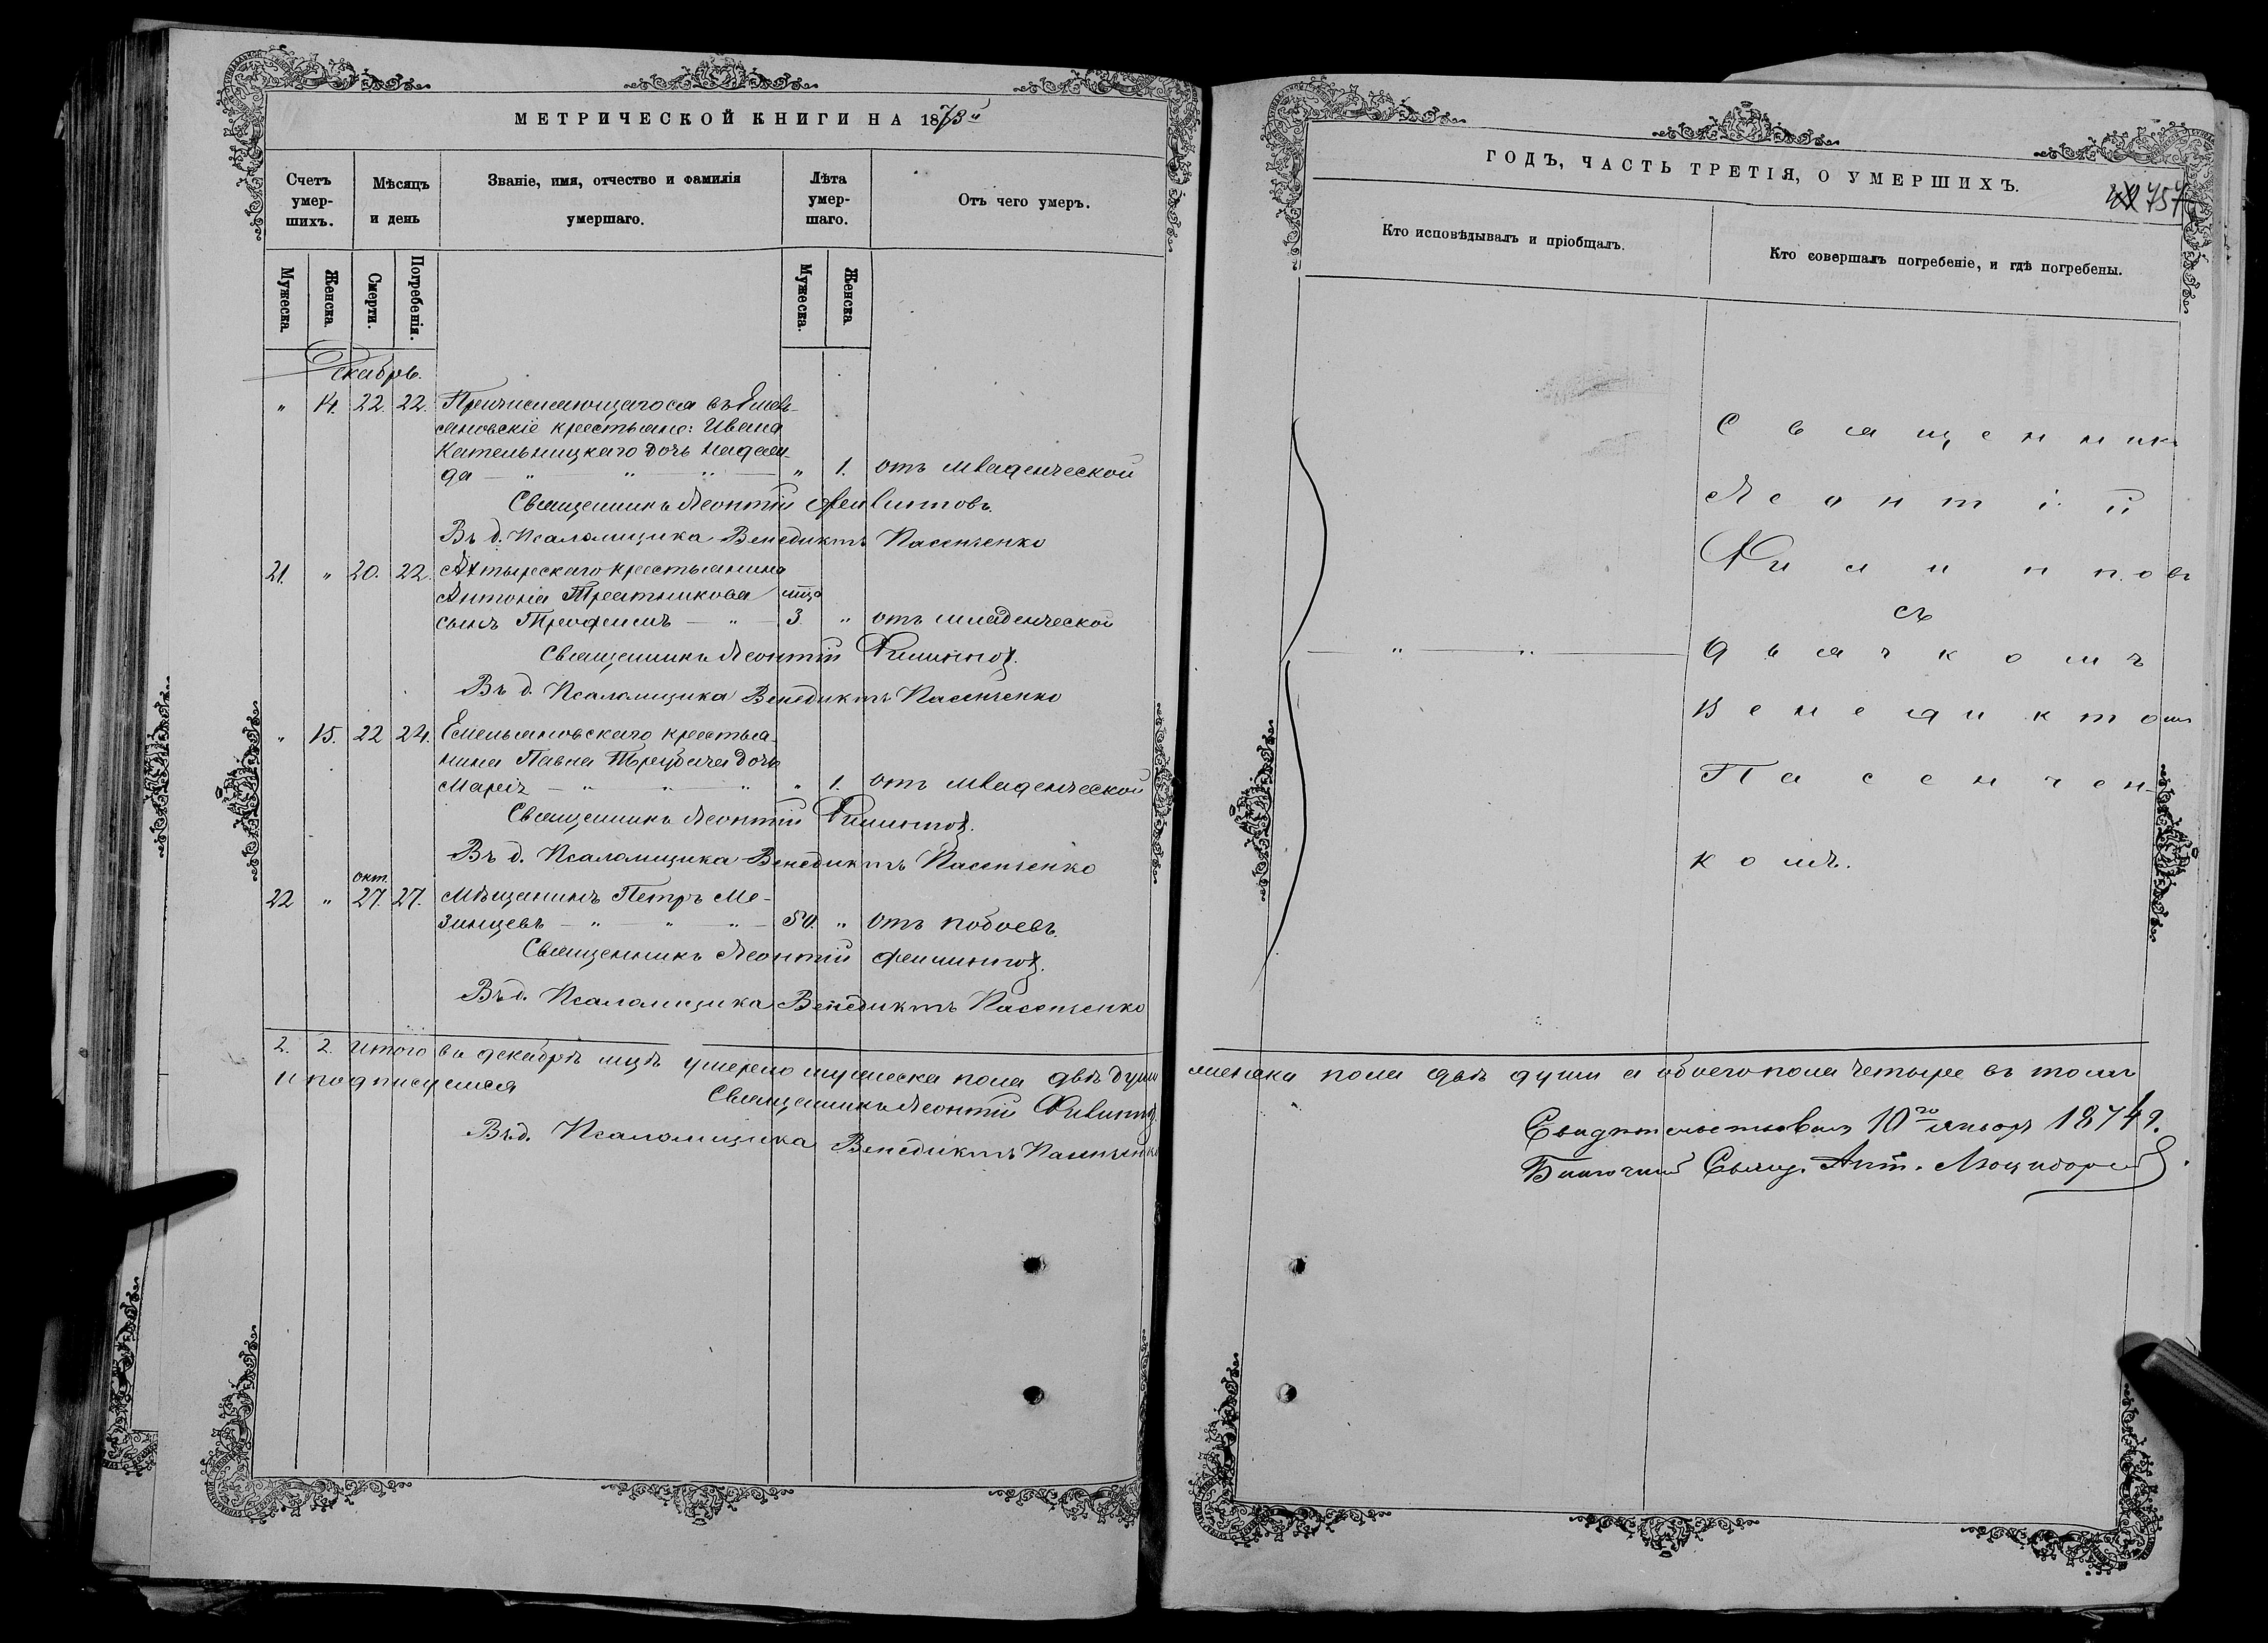 МЕТРИЧЕСКОЙ КНИГИ НА 1873й
Счетъ умер-шихъ.
Мѣсяцъ и день
Званіе, имя, отчество и фамилія умершаго.
Лѣта умер-шаго.
Отъ чего умеръ.
Мужеска.
Женска.
Смерти.
Погребенія.
Мужеска.
Женска
Декабрь.
" 14. 22. 22. Причисляющагося въ Емель-
яновскіе крестьяне: Ивана
Котельницкаго дочь Надеж-
да — " " " — " 1. отъ младенческой
Священникъ Леонтій Филиповъ.
Въ д. Псаломщика Венедиктъ Пасенченко
21. " 20. 22. Ахтырскаго крестьянина
Антонія Трятникова мѣца
сынъ Трофимъ — " — 3. " отъ младенческой
Священникъ Леонтій Филиппов.
Въ д. Псаломщика Венедиктъ Пасенченко
" 15. 22 24. Емельяновскаго крестья-
нина Павла Трубича дочь
Марія — " " " " 1. отъ младенческой
Священникъ Леонтій Филиппов.
Въ д. Псаломщика Венедиктъ Пасенченко
окт.
22 " 27. 27. Мѣщанинъ Петръ Ме-
зинцевъ — " — " — " — 50. " отъ побоевъ.
Священникъ Леонтій Филиппов.
Въ д. Псаломщика Венедиктъ Пасенченко
2. 2. Итого въ декабрѣ мцѣ умерло мужеска пола двѣ души
и подписуемся
Священникъ Леонтій Филиппов
Въ д. Псаломщика Венедиктъ Пасенченко
ГОДЪ, ЧАСТЬ ТРЕТІЯ, О УМЕРШИХЪ.
757
Кто исповѣдывалъ и пріобщалъ.
Кто совершалъ погребеніе, и гдѣ погребены.
Священникъ
Леонтій
Филипповъ
съ
— " " — дьячкомъ
Венедиктомъ
Пасенчен-
комъ.
женска пола двѣ души а обоего пола четыре въ томъ
Свидѣтельствовалъ 10го январь 1874 г.
Благочинный Свящ. Ант.